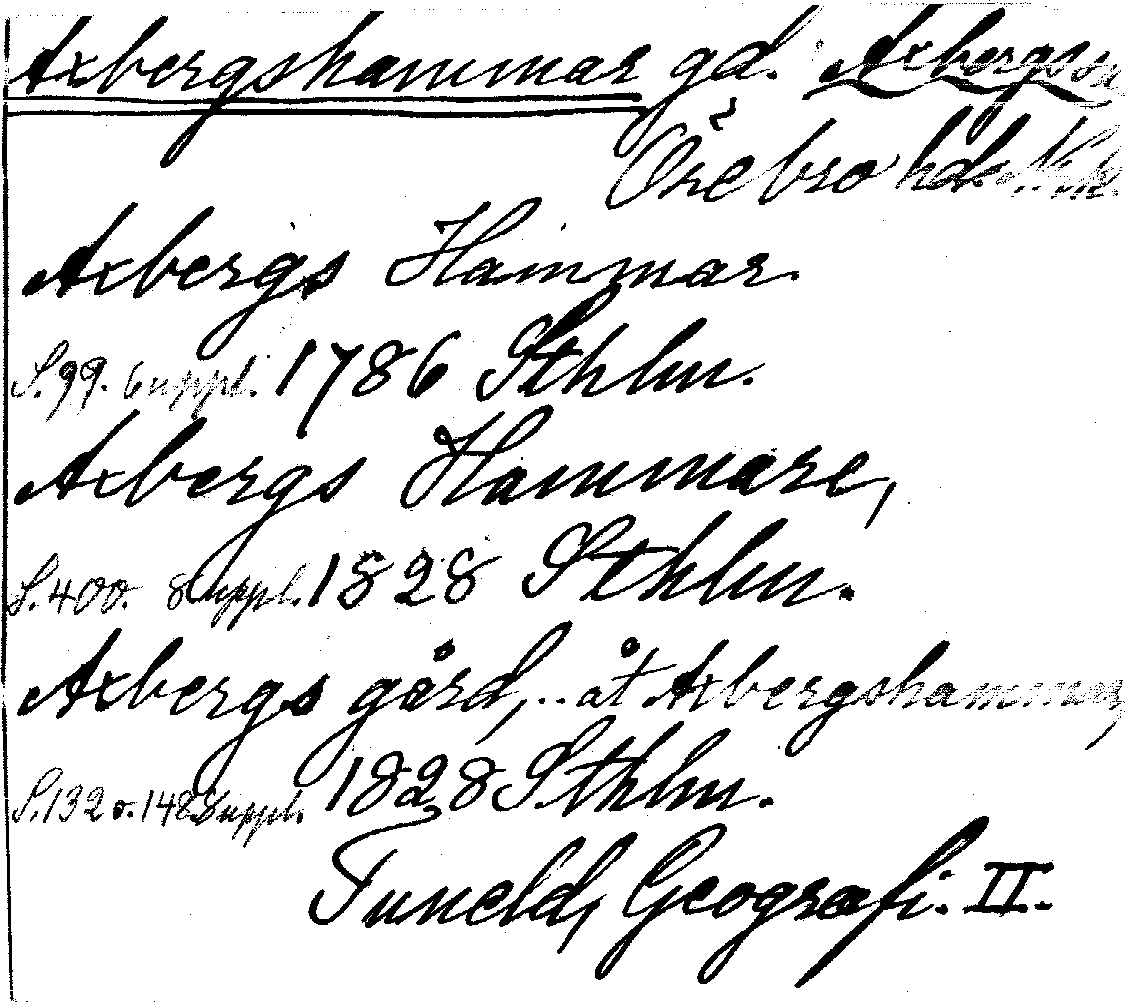 Axbergshammar gd. Axbergs sn
Örebro hd.
Axbergs Hammar.
S. 99. Suppl. 1786 Sthlm.
Axbergs Hammare,
S. 400. Suppl. 1828 Sthlm.
Axbergs gård, .. åt Axbergshammar,
S. 132 o. 148 Suppl. 1828 Sthlm.
Tuneld, Geografi. II.